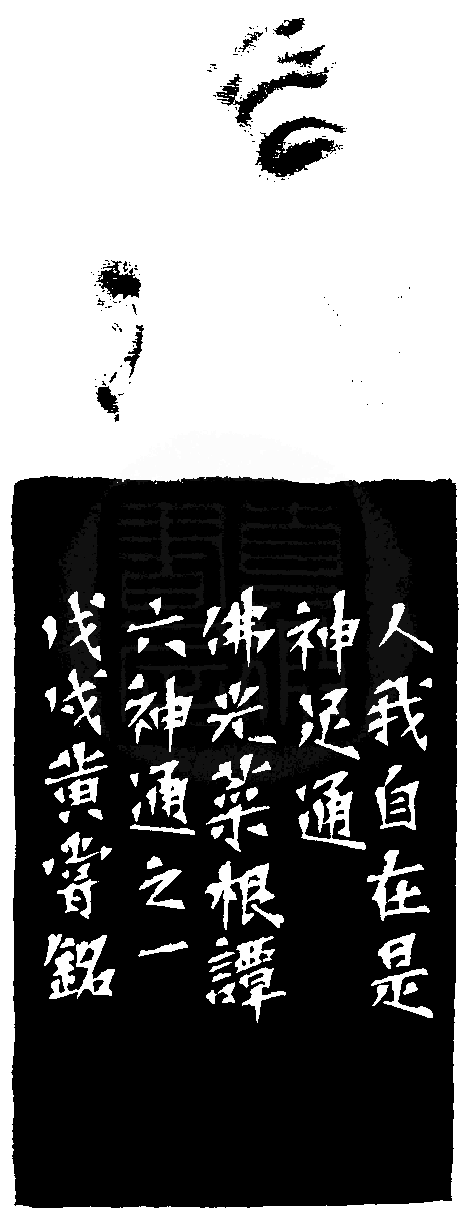 人我自在是
神足通
佛光菜根譚
六神通之一
戊戌黄嘗銘